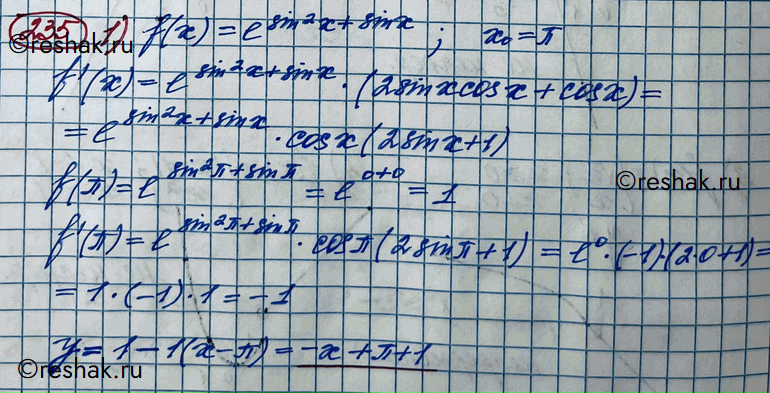 235 1) f(x) = e^(sin²x+sinx) ; x₀ = π
f'(x) = e^(sin²x+sinx) · (2sinxcosx + cosx) =
= e^(sin²x+sinx) · cosx(2sinx+1)
f(π) = e^(sin²π+sinπ) = e^(0+0) = 1
©reshak.ru
f'(π) = e^(sin²π+sinπ) · cosπ(2sinπ+1) = e⁰·(-1)·(2·0+1) =
= 1·(-1)·1 = -1
y = 1 - 1(x-π) = -x + π + 1
©reshak.ru